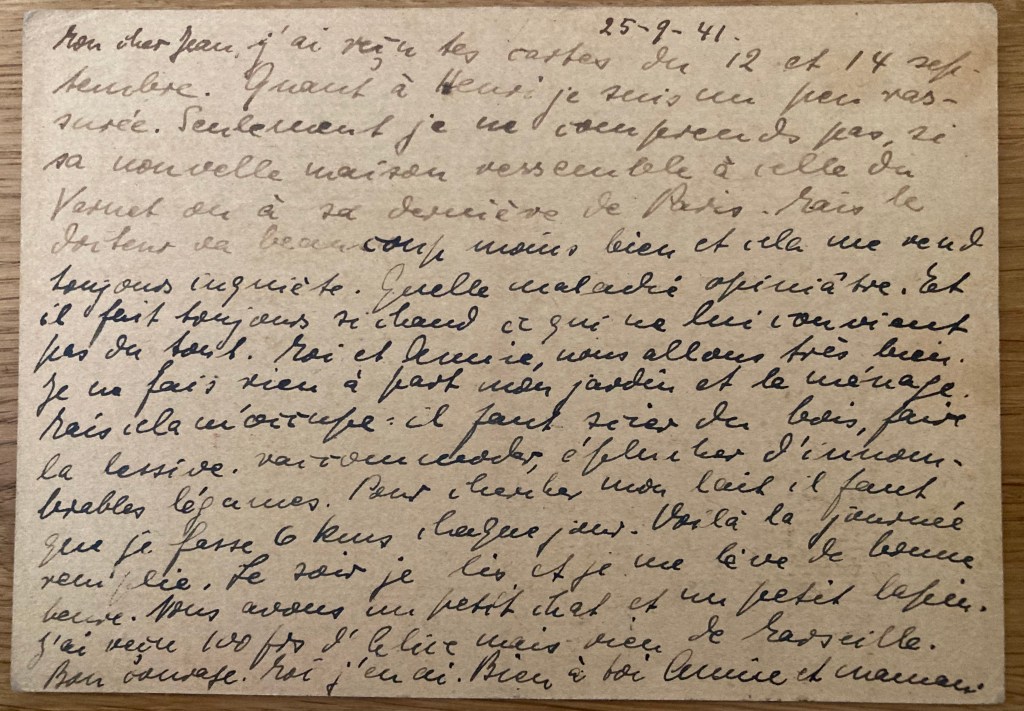 25-9-41.
Mon cher Jean, j'ai reçu tes cartes du 12 et 14 sep-
tembre. Quant à Henri je suis un peu ras-
surée. Seulement je ne comprends pas, si
sa nouvelle maison ressemble à celle du
Vernet ou à sa dernière de Paris. Mais le
docteur va beaucoup moins bien et cela me rend
toujours inquiète. Quelle maladie opiniâtre. Et
il fait toujours si chaud ce qui ne lui convient
pas du tout. Moi et Annie, nous allons très bien.
Je ne fais rien à part mon jardin et le ménage.
Mais cela m'occupe: il faut scier du bois, faire
la lessive, raccommoder, éplucher d'innom-
brables légumes. Pour chercher mon lait il faut
que je fasse 6 kms chaque jour. Voilà la journée
remplie. Le soir je lis, et je me lève de bonne
heure. Nous avons un petit chat et un petit lapin.
J'ai reçu 100 frs d' mais rien de Marseille.
Bon courage. Moi j'en ai. Bien à toi Annie et maman